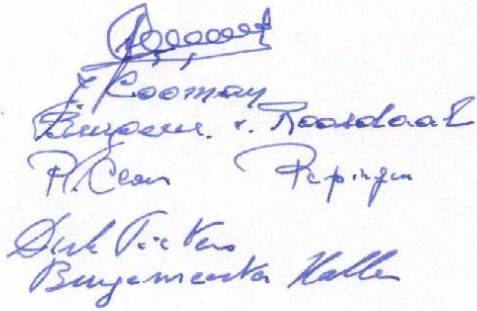 J Kooman
Burgem. v. Roosdaal
P. Clem Pepingen
Dirk Pieters
Burgemeester Halle